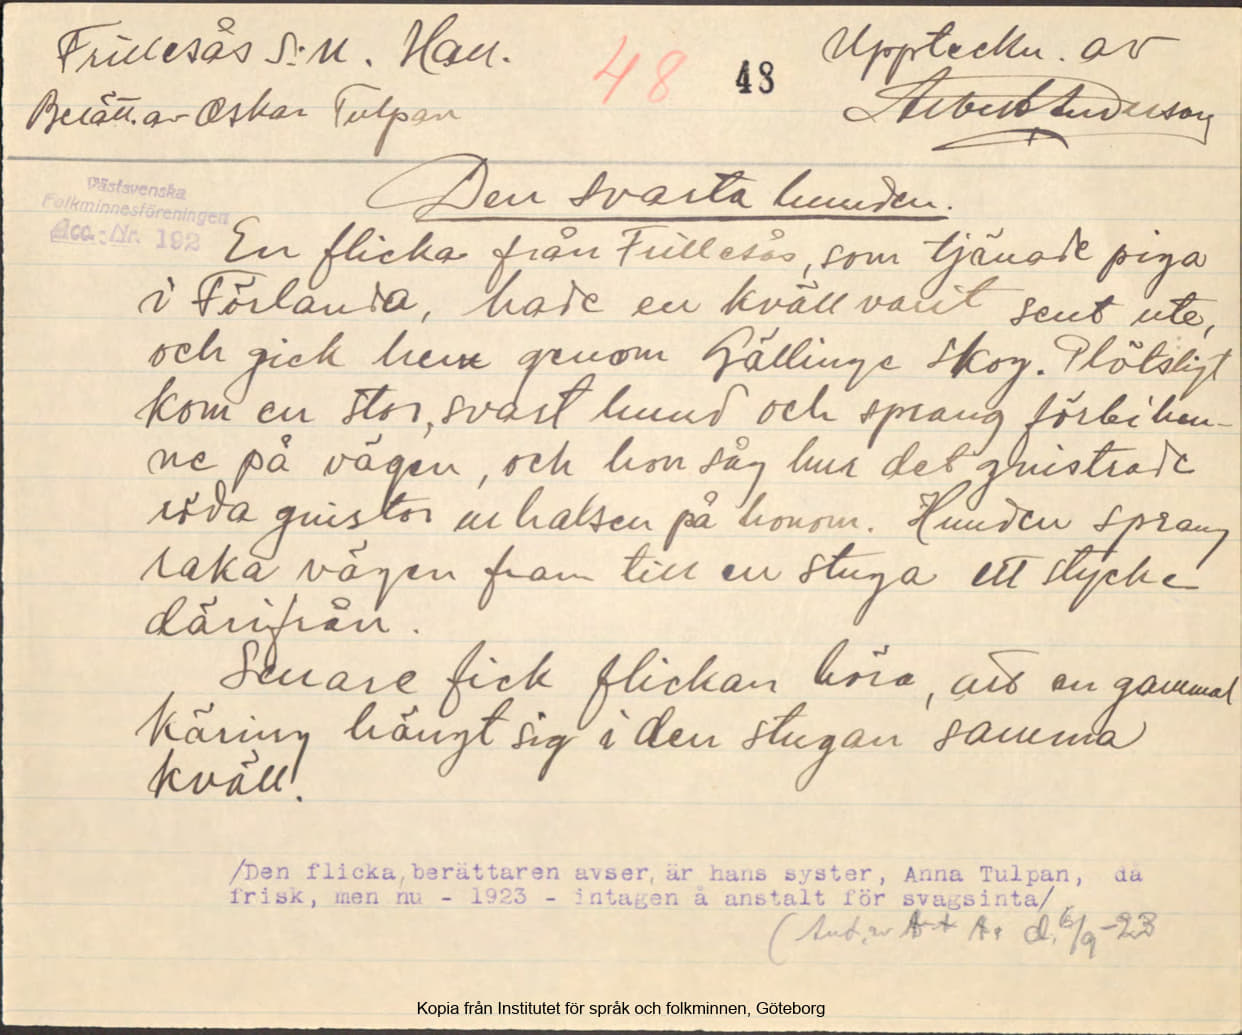 Frillesås S:n. Hall.
48 48
Uppteckn. av
Berätt. av Oskar Tulpan
Anderson
Den svarta hunden.
Västsvenska
Folkminnesföreningen
Acc.-Nr. 192
En flicka från Frillesås, som tjänade piga
i Förlanda, hade en kväll varit sent ute,
och gick hem genom Gällinge skog. Plötsligt
kom en stor, svart hund och sprang förbi hen-
ne på vägen, och hon såg hur det gnistrade
röda gnistor ur halsen på honom. Hunden sprang
raka vägen fram till en stuga ett stycke
därifrån.
Senare fick flickan höra, att en gammal
käring hängt sig i den stugan samma
kväll.
/Den flicka, berättaren avser, är hans syster, Anna Tulpan, då
frisk, men nu - 1923 - intagen å anstalt för svagsinta/
d. 6/9 -23
Kopia från Institutet för språk och folkminnen, Göteborg